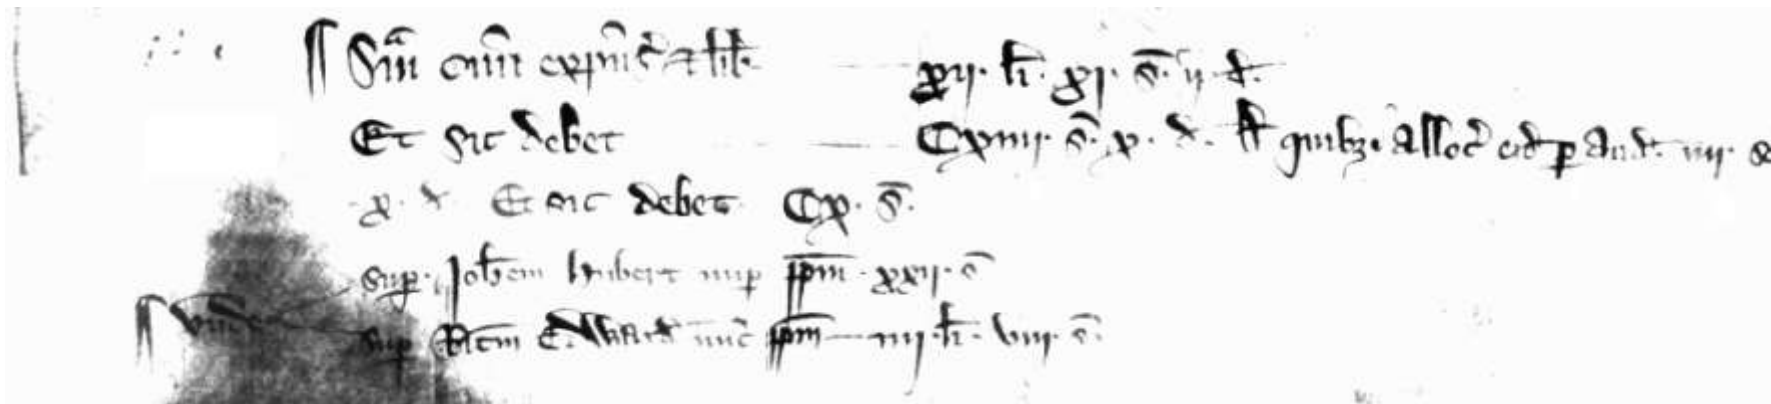 ¶ Sm̄a om̄iū expn̄s̄ & lib̄ xij. li. xj. s̄. ij. d.
Et sic debet Cxiiij. s̄. x. d. De quibz. Alloc̄ eid p Aud. iiij. s
x. d Et sic debet Cx. s̄.
sup. Joh̄em hubert nup ppm̄. xxij. s̄
¶ vnd̄ sup Ric̄m Edward nūc ppm̄ iiij. li. viij. s̄.